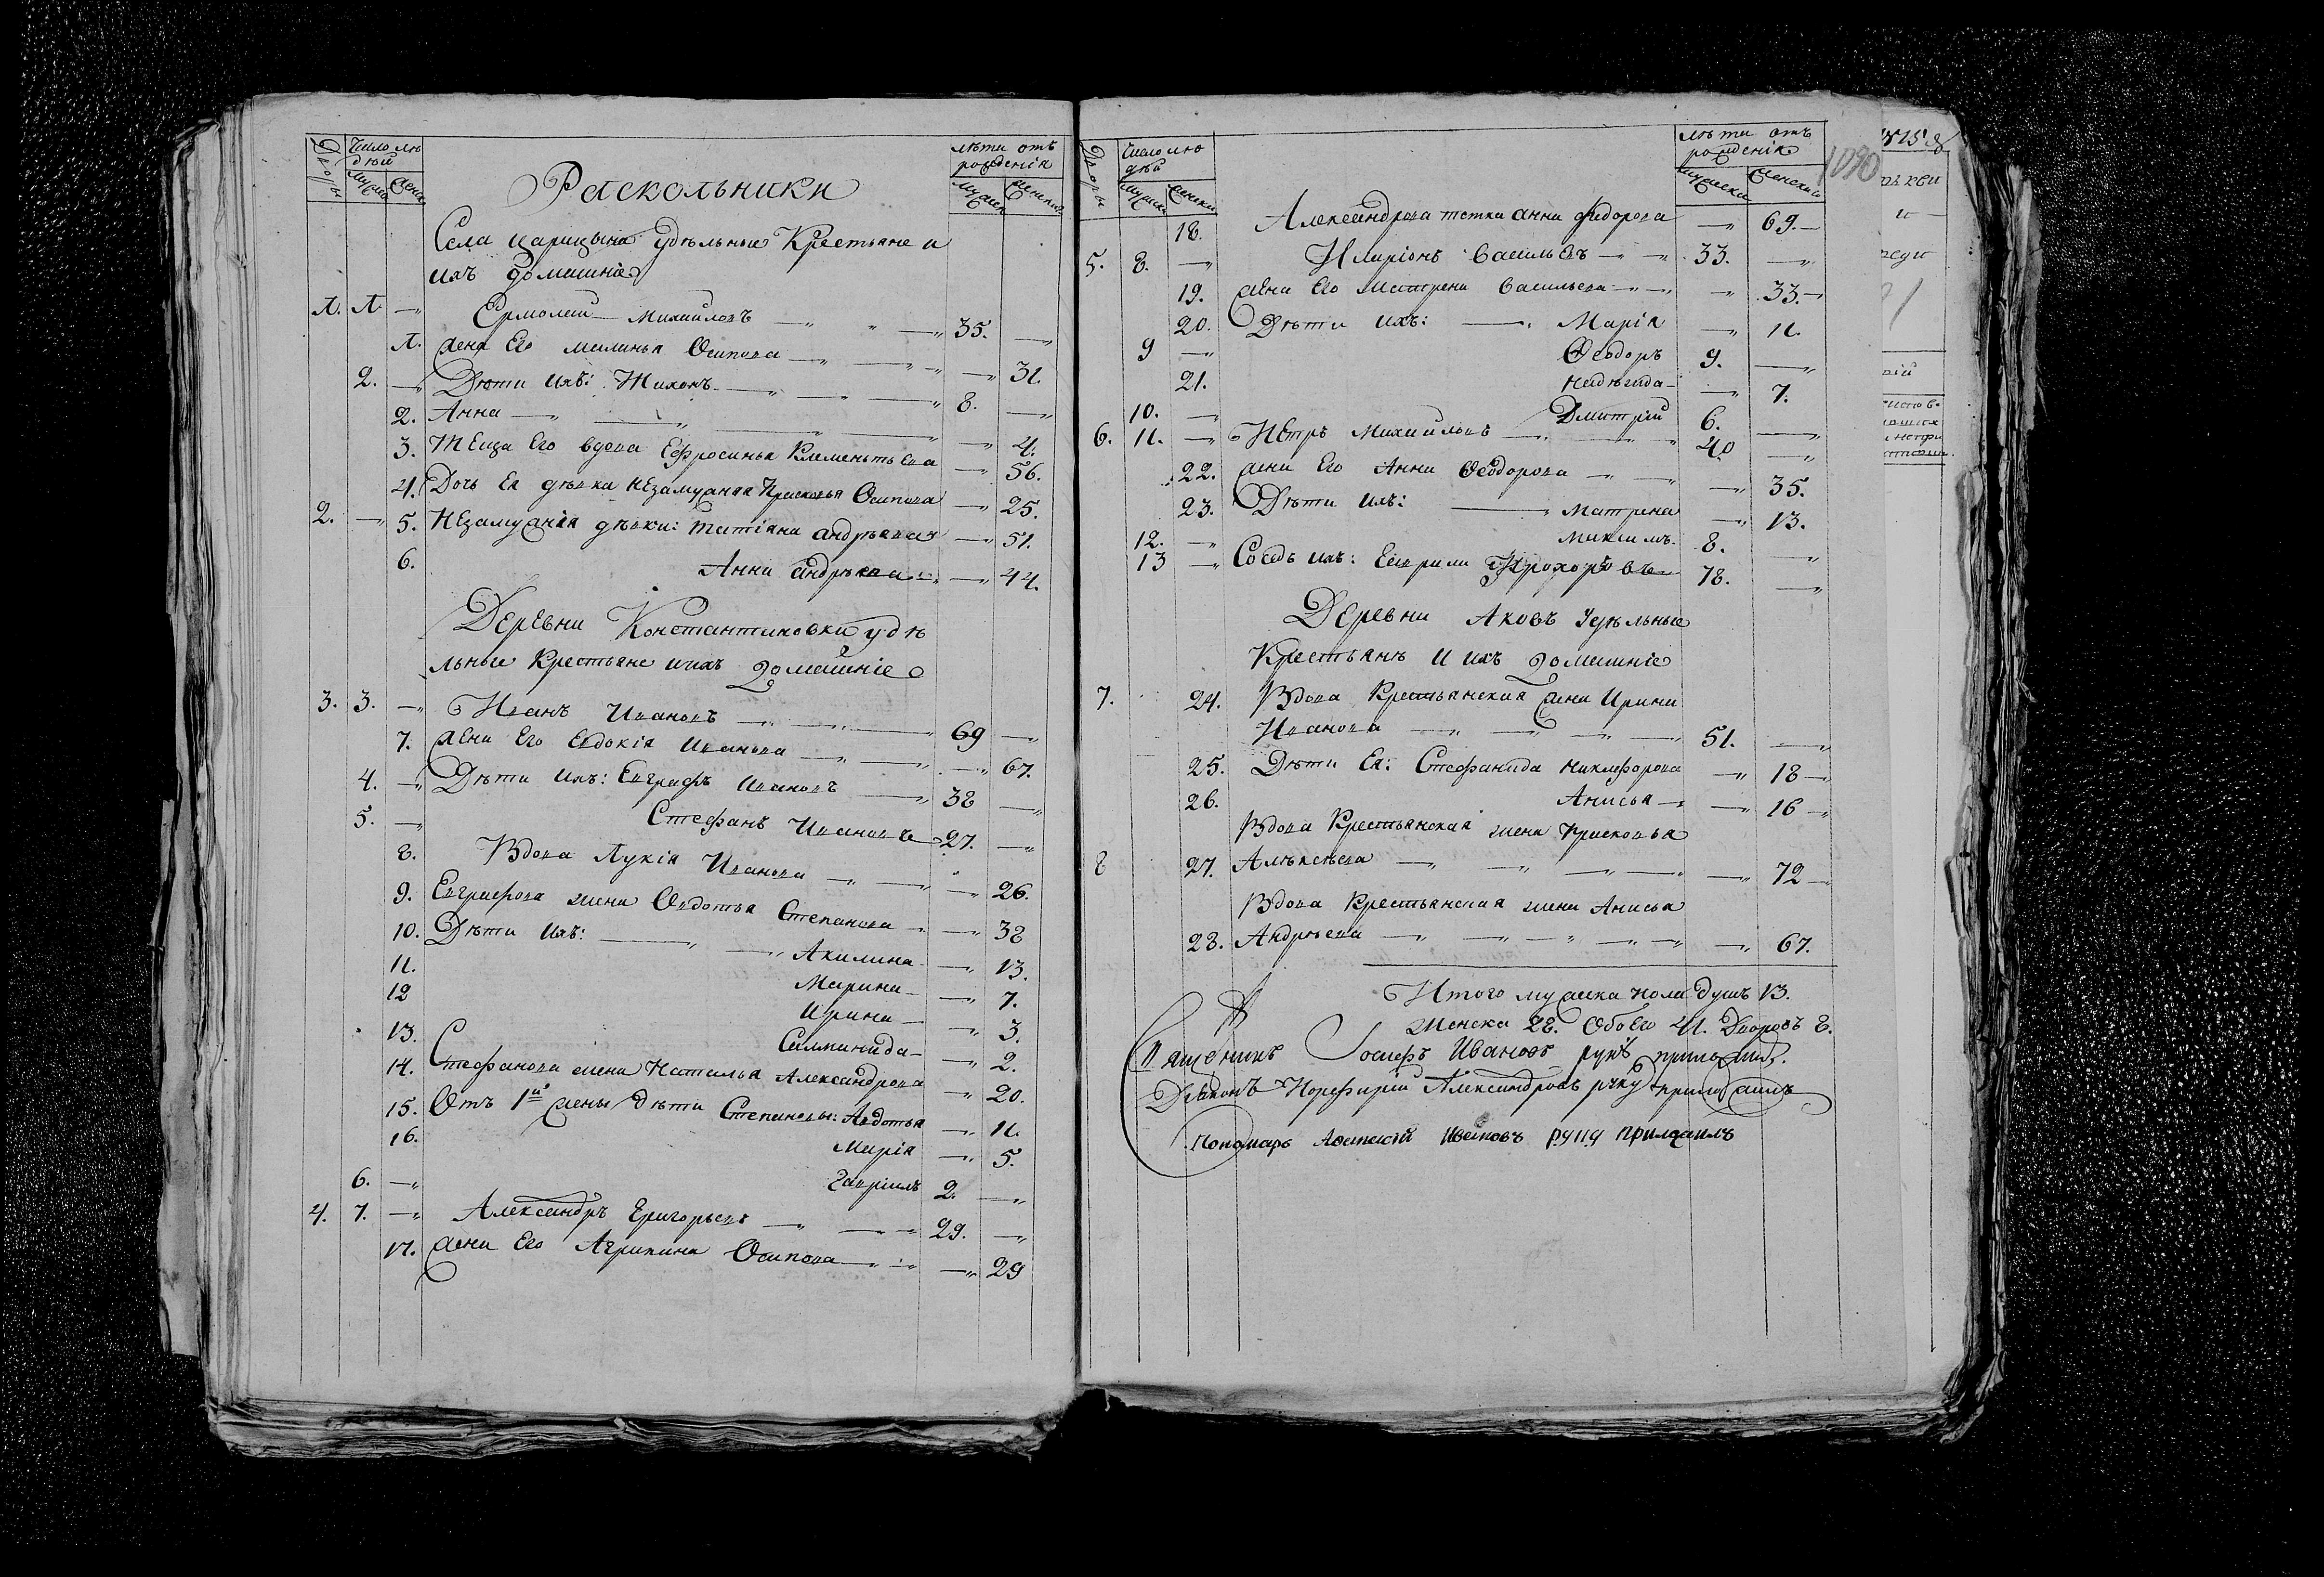 Дворы
Число лю
дѣй
Мужска
Женска
Раскольники
лѣта отъ
рожденія
мужска
женска
Села Царицына Удѣльные Крестьяне и
ихъ домашніе
1. 1 — Ермолай Михайловъ — " — " 35. — "
1. жена Его Меланья Осипова — " — " — " 31.
2. — " Дѣти ихъ: Тихонъ — " — " 8. — "
2. Анна — " — " — " — " 4.
3. Теща Его вдова Ефросинья Клементьева — " 56.
4. Дочь Ея дѣвка Незамужняя Прасковья Осипова — " 25.
2. — " 5. Незамужнія дѣвки: Татіана Андрѣева — " 51.
6. Анна Андрѣева — " — " 44.
Деревни Константиновки удѣ
льные Крестьяне и ихъ домашніе
3. 3. — " Иванъ Ивановъ — " — " 69 — "
7. жена Его Евдокія Иванова — " — " — " 67.
4. — " Дѣти ихъ: Евграфъ Ивановъ — " 38 — "
5. — " Стефанъ Ивановъ 27. — "
8. Вдова Лукія Иванова — " — " — " 26.
9. Евграфова жена Овдотья Степанова — " — " 38
10. Дѣти ихъ: — " — " Акилина — " 13.
11. Марина — " 7.
12 Ирина — " 3.
13. — " 2.
14. Стефанова жена Наталья Александрова — " 20.
15. Отъ 1й жены дѣти Степановы: Авдотья — " 11.
16. Марія — " 5.
6. — " Гавріилъ 2. — "
4. 7. — " Александръ Григорьевъ — " — " 29. — "
17. жена Его Агрипина Осипова — " — " — " 29
Дворы
Число лю
дѣй
Мужска
Женска
лѣта отъ
рожденія
мужска
женска
1090
18. Александрова тетка Анна Фидорова — " 69. —
5. 8. — " Иларіонъ Васильевъ — " — " 33. — "
19. жена Его Матрена Васильева — " — " " 33. —
20. Дѣти ихъ: — " Марія — " 11.
9 — " Феодоръ 9. — "
21. Надѣжда — — " 7.
10. — " Дмитрій 6. — "
6. 11. — " Петръ Михайловъ — " — " 40 — "
22. жена Его Анна Феодорова — " — " — " 35.
23. Дѣти ихъ: — " Матрена — " 13.
12. — " Максимъ 8. — "
13 — " Сосѣдъ ихъ: Прохоровъ 78. — "
Деревни Аховъ Удѣльные
Крестьянѣ и ихъ домашніе
7. 24. Вдова Крестьянская жена Ирина
Иванова — " — " — " — " 51. — "
25. Дѣти Ея: Стефанида Никифорова — " 18 — "
26. Анисья — " — " 16 — "
Вдова Крестьянская жена Прасковья
8 27. Алѣксѣева — " — " — " — " — " 72 — "
Вдова Крестьянская жена Анисья
28. Андрѣева — " — " — " — " — " — " 67.
Итого мужска пола душъ 13.
Женска 28. Обоего 41. Дворовъ 8.
Священникъ Іосифъ Ивановъ руку приложилъ.
Діаконъ Порфирій Александровъ руку приложилъ
Пономарь Ивановъ руку приложилъ